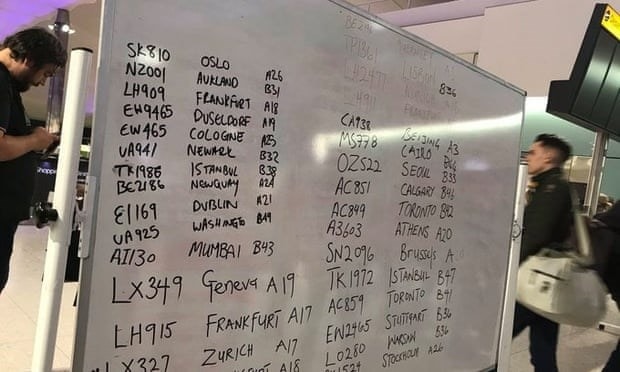 SK810 OSLO A26
NZ001 AUKLAND B31
LH909 FRANKFURT A18
EW9465 DUSELDORF A19
EW465 COLOGNE A25
UA941 NEWARK B32
TK1986 ISTANBUL B38
BE2186 NEWQUAY A24
EI169 DUBLIN A21
UA925 WASHINGTO B49
AI130 MUMBAI B43
LX349 Geneva A19
LH915 FRANKFURT A17
LX327 ZURICH A17
A18
TP1361 LISBON
LH2477
LH911
CA938 BEIJING A3
MS778 CAIRO
OZ522 SEOUL B33
AC851 CALGARY B46
AC849 TORONTO B42
A3603 ATHENS A20
SN2096 Brussels
TK1972 ISTANBUL B47
AC859 TORONTO B41
EW2465 STUTTGART B36
LO280 WARSAW B36
STOCKHOLM A26